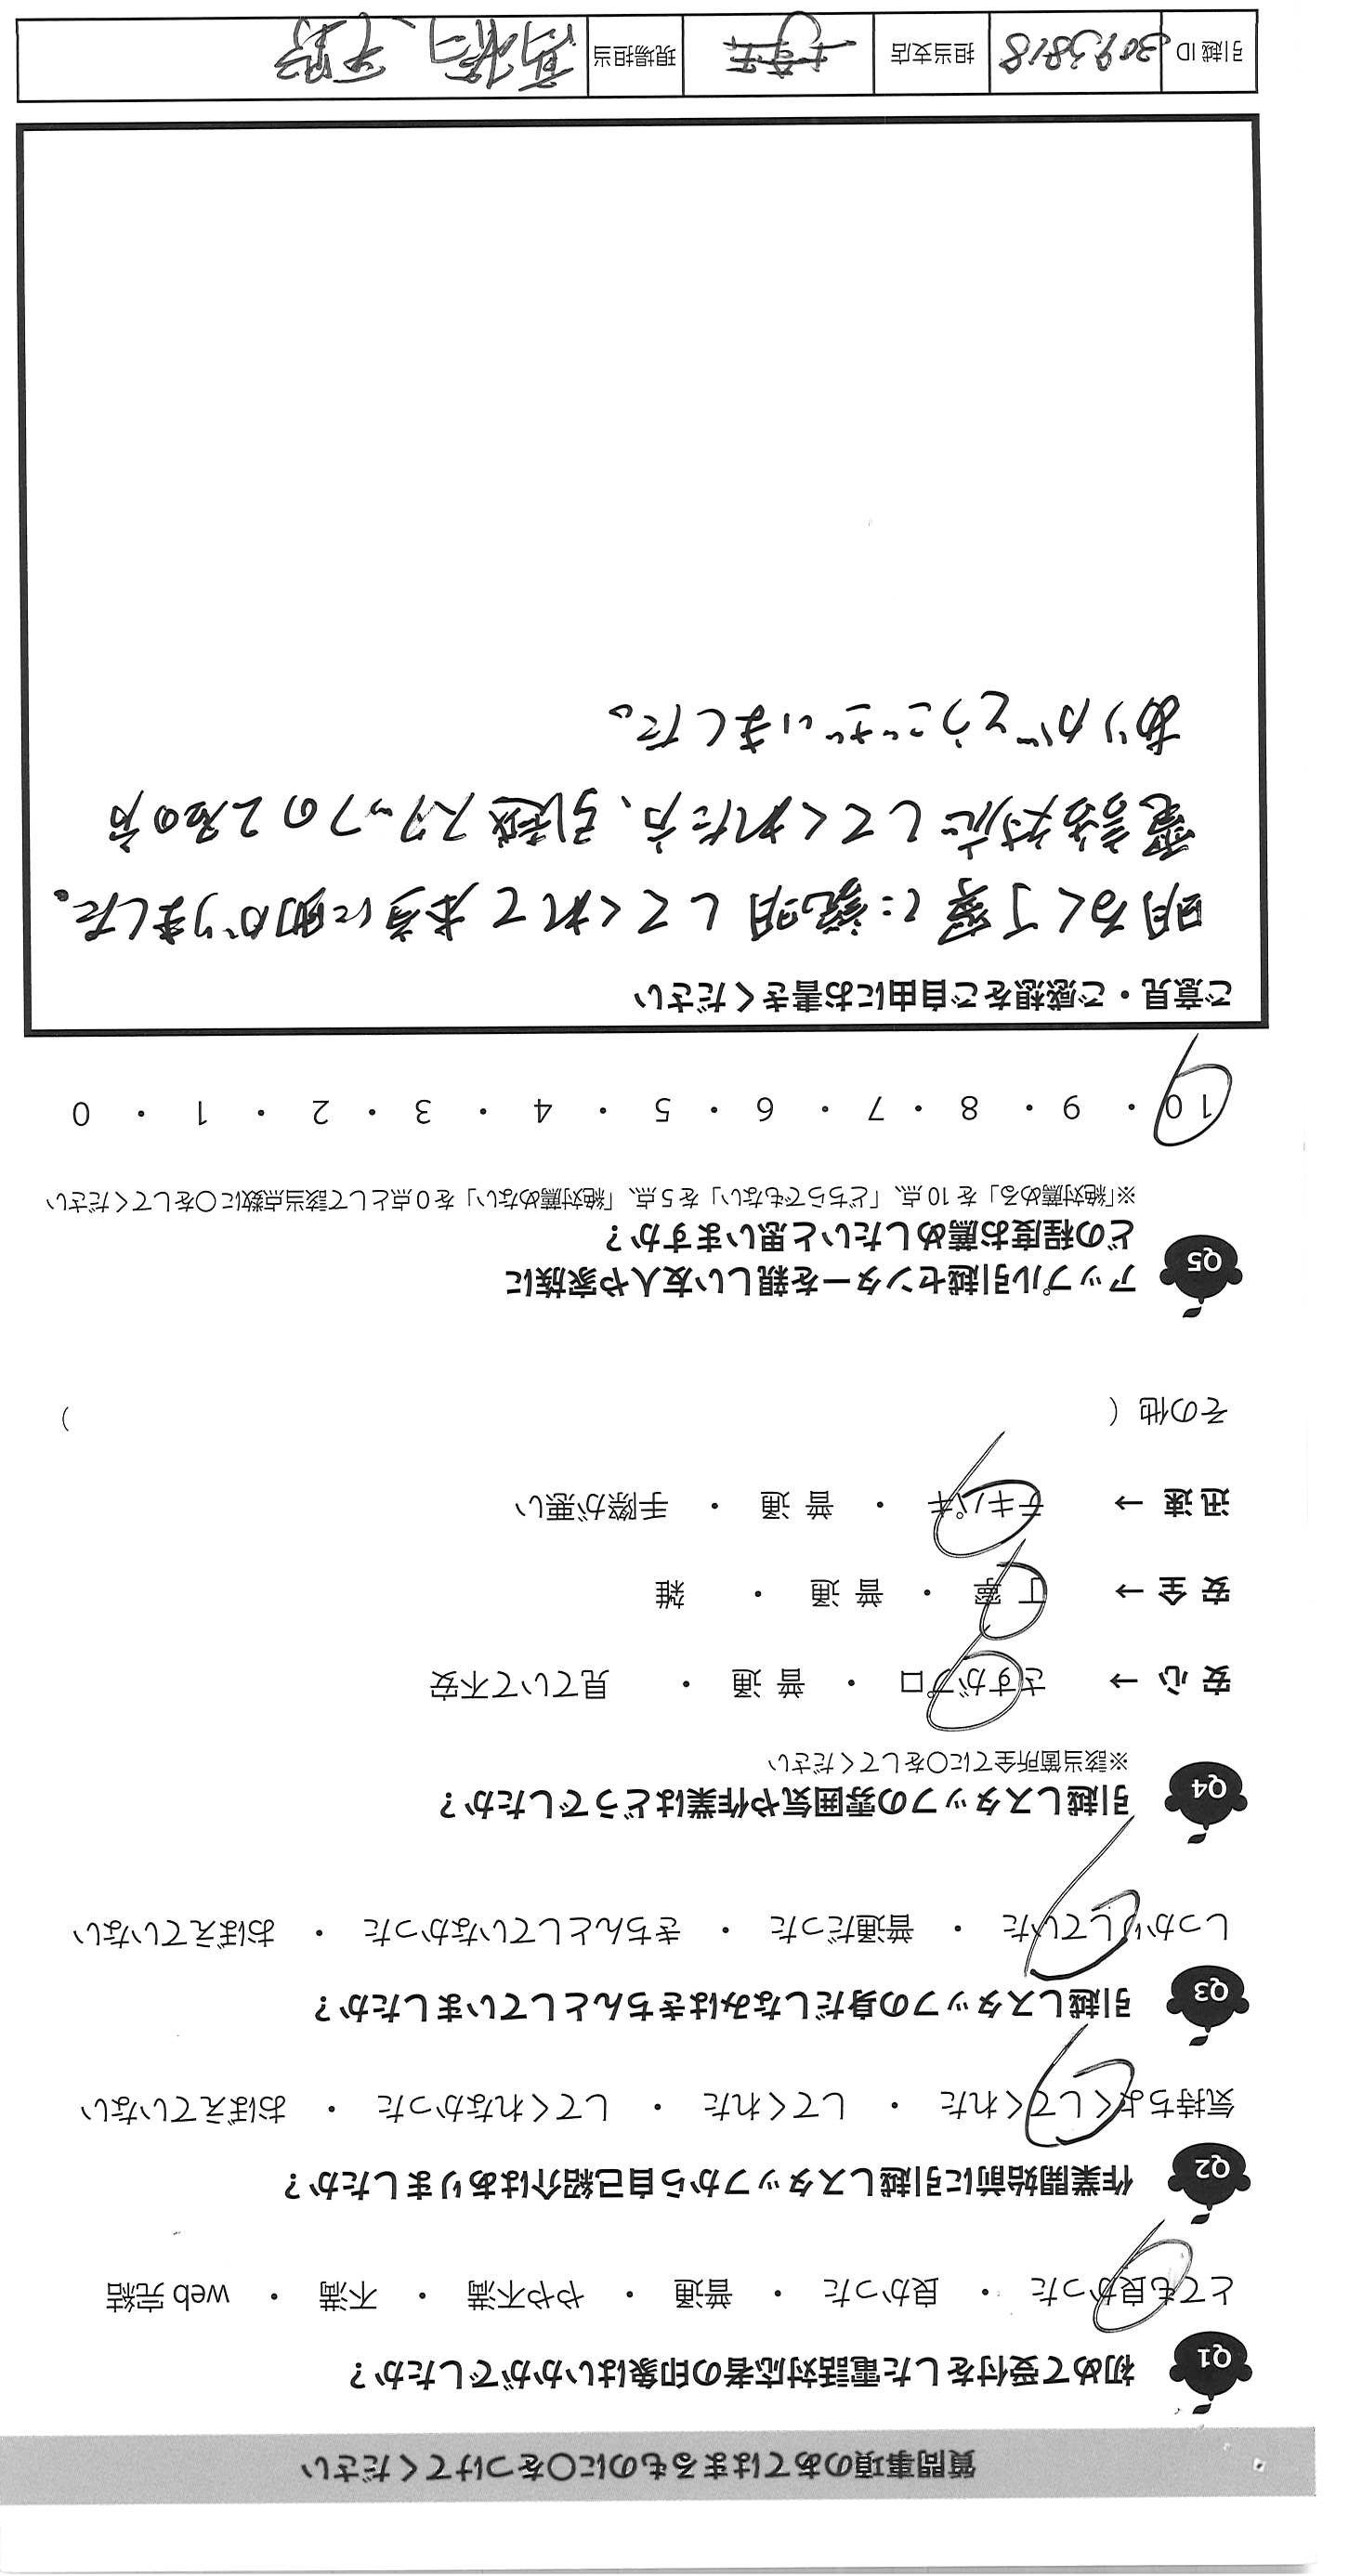 質問事項のあてはまるものに〇をつけてください
Q1 初めて受付をした電話対応者の印象はいかがでしたか？
とても良かった ・ 良かった ・ 普通 ・ やや不満 ・ 不満 ・ web 完結
Q2 作業開始前に引越しスタッフから自己紹介はありましたか？
気持ちよくしてくれた ・ してくれた ・ してくれなかった ・ おぼえていない
Q3 引越しスタッフの身だしなみはきちんとしていましたか？
しっかりしていた ・ 普通だった ・ きちんとしていなかった ・ おぼえていない
Q4 引越しスタッフの雰囲気や作業はどうでしたか？
※該当箇所全てに〇をしてください
安 心 → さすがプロ ・ 普 通 ・ 見ていて不安
安 全 → 丁 寧 ・ 普 通 ・ 雑
迅 速 → テキパキ ・ 普 通 ・ 手際が悪い
その他（ ）
Q5 アップル引越センターを親しい友人や家族に
どの程度お薦めしたいと思いますか？
※「絶対薦める」を 10 点、「どちらでもない」を 5 点、「絶対薦めない」を 0 点として該当点数に〇をしてください
10 ・ 9 ・ 8 ・ 7 ・ 6 ・ 5 ・ 4 ・ 3 ・ 2 ・ 1 ・ 0
ご意見・ご感想をご自由にお書きください
明るく丁寧に説明してくれて本当に助かりました。
電話対応してくれた方、引越スタッフの2名の方
ありがとうございました。
引越 ID 3093818 担当支店 埼玉 現場担当 高橋、天野